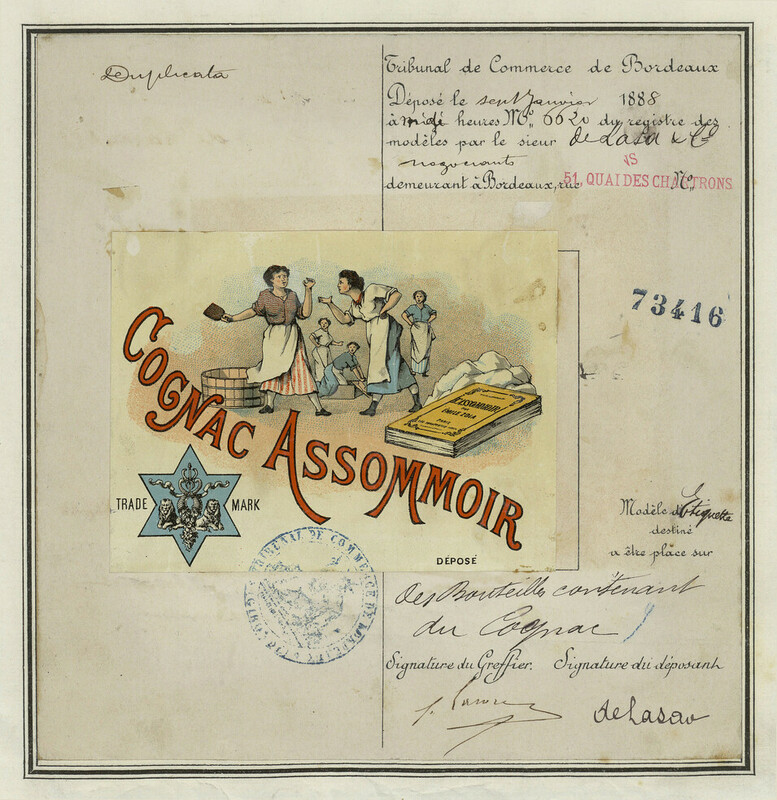 Duplicata
Tribunal de Commerce de Bordeaux
Déposé le sept Janvier 1888
à midi heures No. 6620 du registre des
modèles par le sieur de Lasa & Cie
negociants
demeurant à Bordeaux, rue No.
51, QUAI DES CHARTRONS
73416
COGNAC ASSOMMOIR
L'ASSOMMOIR
ÉMILE ZOLA
PARIS
TRADE MARK
DÉPOSÉ
TRIBUNAL DE COMMERCE DE BORDEAUX
Modèle d'Etiquette
destiné
a être place sur
des Bouteilles contenant
du Cognac
Signature du Greffier. Signature du déposant